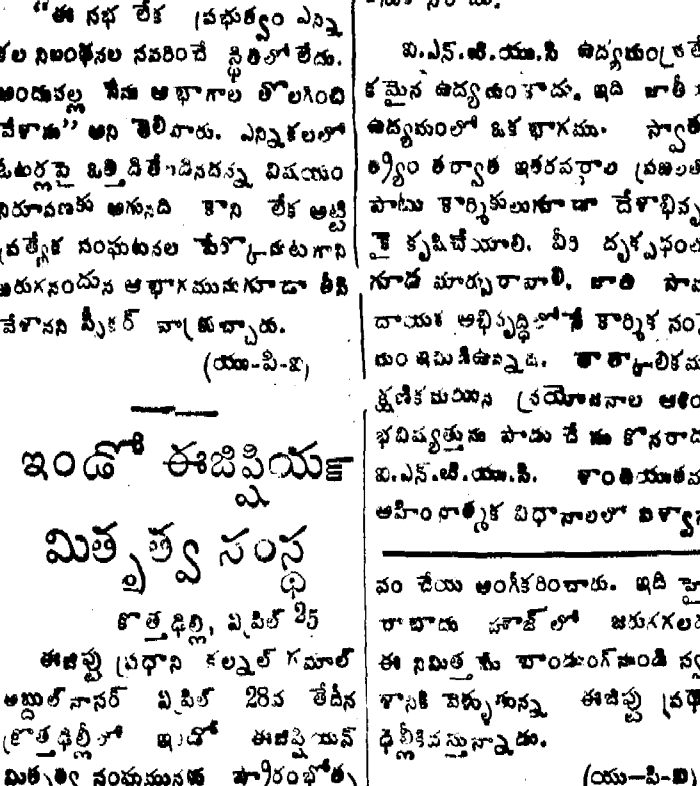 “ఈ సభ లేక ప్రభుత్వం ఎన్ని
కల నిబంధనల సవరించే స్థితిలో లేదు.
అందువల్ల నేను ఆ భాగాల తొలగించి
వేశాను” అని తెలిపారు. ఎన్నికలలో
ఓటర్లపై ఒత్తిది తేబడినదన్న విషయం
నిరూపణకు అగునది కాని లేక అట్టి
ప్రత్యేక సంఘటనల పేర్కొనుటగాని
జరుగనందున ఆ భాగమునుగూడా తీసి
వేశానని స్పీకర్ వాక్రుచ్చారు.
(యు-పి-ఐ)
ఇండో ఈజిప్షియన్
మితృత్వ సంస్థ
కొత్తఢిల్లీ, ఏప్రిల్ 25
ఈజిప్టు ప్రధాని కల్నల్ గమాల్
అబ్దుల్ నాసర్ ఏప్రిల్ 28వ తేదీన
క్రొత్తఢిల్లీలో ఇండో ఈజిప్షియన్
మితృత్వ సంఘమునకు ప్రారంభోత్స
ఐ.ఎన్.టి.యు.సి ఉద్యమం
కమైన ఉద్యమంకాదు. ఇది జాతీ
ఉద్యమంలో ఒక భాగము. స్వాత
త్ర్యం తర్వాత ఇతరవర్గాల ప్రజలతో
పాటు కార్మికులుగూడా దేశాభివృ
కై కృషిచేయాలి. వీరి దృక్పథంల
గూడ మార్పురావాలి. జాతి సా
దాయక అభివృద్ధిలోనే కార్మిక సం
యం ఇమిడిఉన్నది. తాత్కాలికమ
క్షణికమయిన ప్రయోజనాల ఆశిం
భవిష్యత్తును పాడు చేసుకొనరాదు
ఐ.ఎన్.టి.యు.సి. శాంతియుతమ
అహింసాత్మక విధానాలలో విశ్వా
వం చేయ అంగీకరించారు. ఇది హై
రాబాదు హౌజ్ లో జరుగగల
ఈ నిమిత్తమే బాండుంగ్ నుండి స్వ
శానికి వెళ్ళుతున్న ఈజిప్టు ప్రధా
ఢిల్లీకివస్తున్నాడు.
(యు-పి-ఐ)